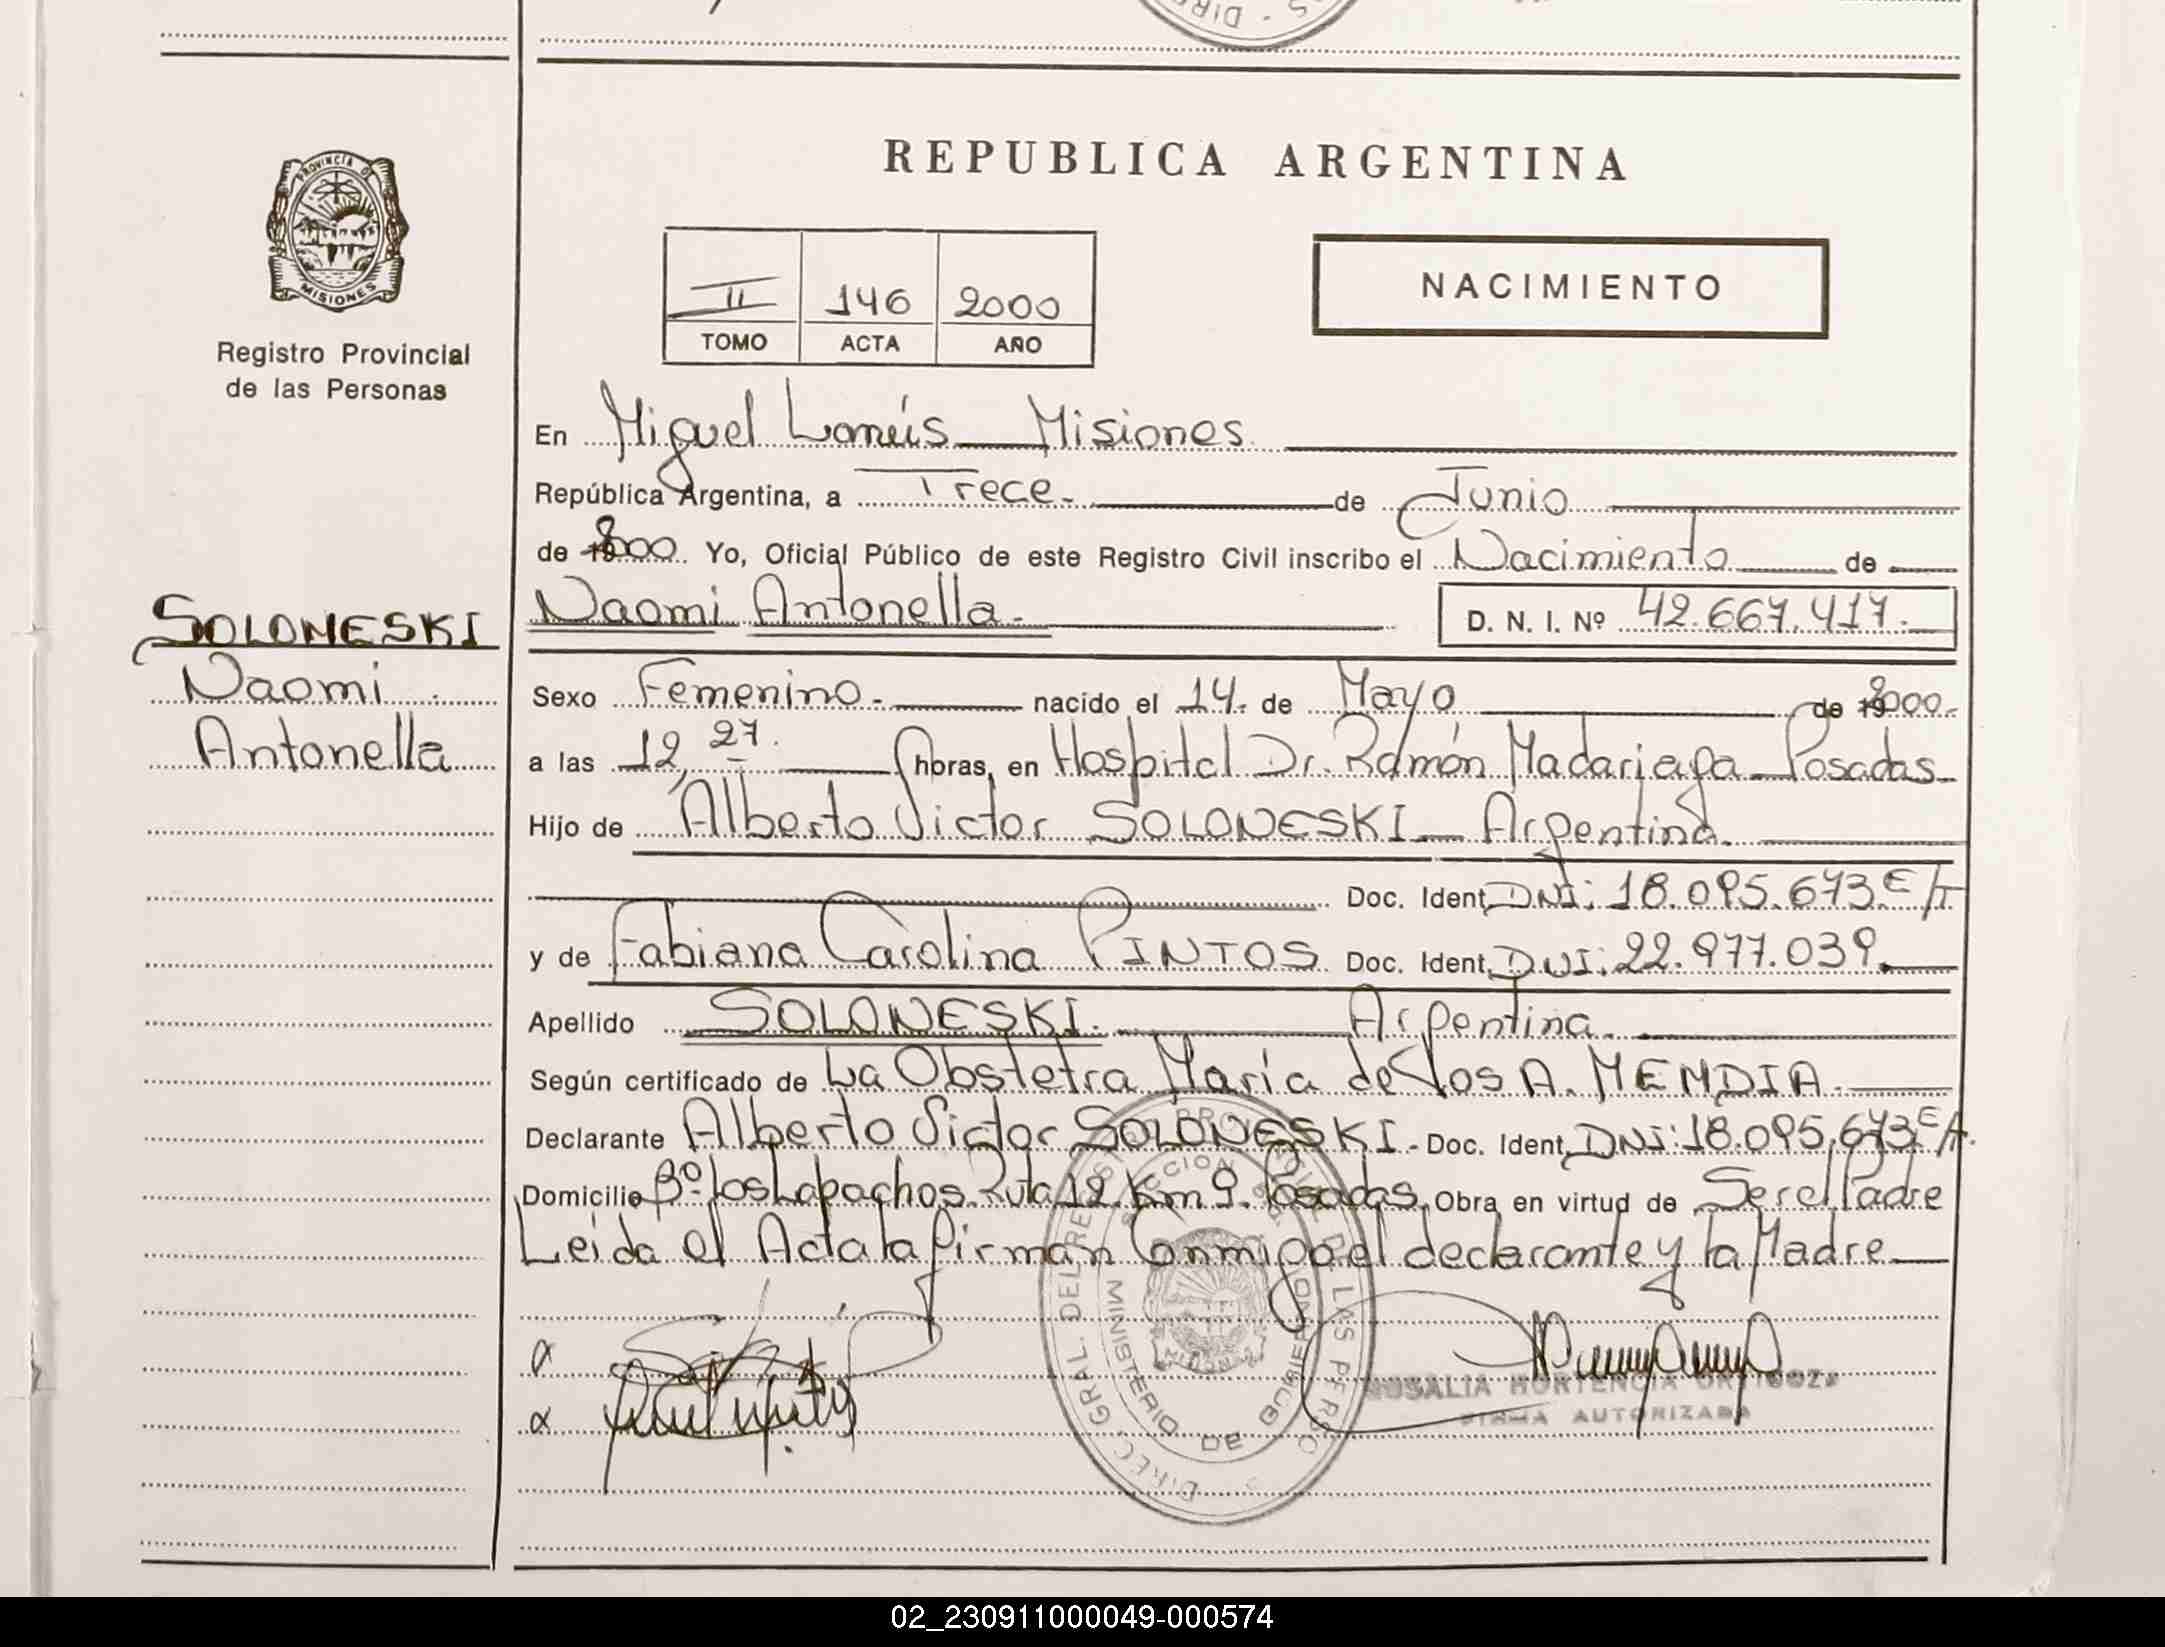 PROVINCIA DE
MISIONES
Registro Provincial
de las Personas
SOLONESKI
Naomi
Antonella
REPUBLICA ARGENTINA
II 146 2000
TOMO ACTA AÑO
NACIMIENTO
En Miguel Lanús Misiones
República Argentina, a Trece de Junio
de 2000. Yo, Oficial Público de este Registro Civil inscribo el Nacimiento de
Naomi Antonella. D. N. I. Nº 42.667.417.
Sexo Femenino. nacido el 14. de Mayo de 2000.
a las 12,27. horas, en Hospital Dr. Ramón Madariaga Posadas
Hijo de Alberto Victor SOLONESKI Argentina.
Doc. Ident. DNI: 18.095.673 E/T
y de Fabiana Carolina PINTOS Doc. Ident. DNI: 22.977.039.
Apellido SOLONESKI. Argentina.
Según certificado de La Obstetra María de los A. MENDIA.
Declarante Alberto Victor SOLONESKI. Doc. Ident. DNI: 18.095.673 E/T.
Domicilio Bº los Lapachos Ruta 12 Km 9. Posadas Obra en virtud de Ser el Padre
Leida el Acta la firman Conmigo el declarante y la Madre
MINISTERIO DE GOBIERNO
MISIONES
ROSALIA HORTENCIA ORTIGOZA
FIRMA AUTORIZADA
02_230911000049-000574